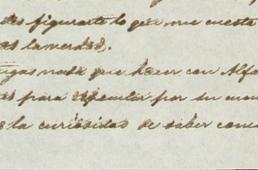 des figurarte lo que me cuesta
as la merdad,
igas nada que hacer con Alfa
as para espeular por su cuen
e la curiosidad de saber como